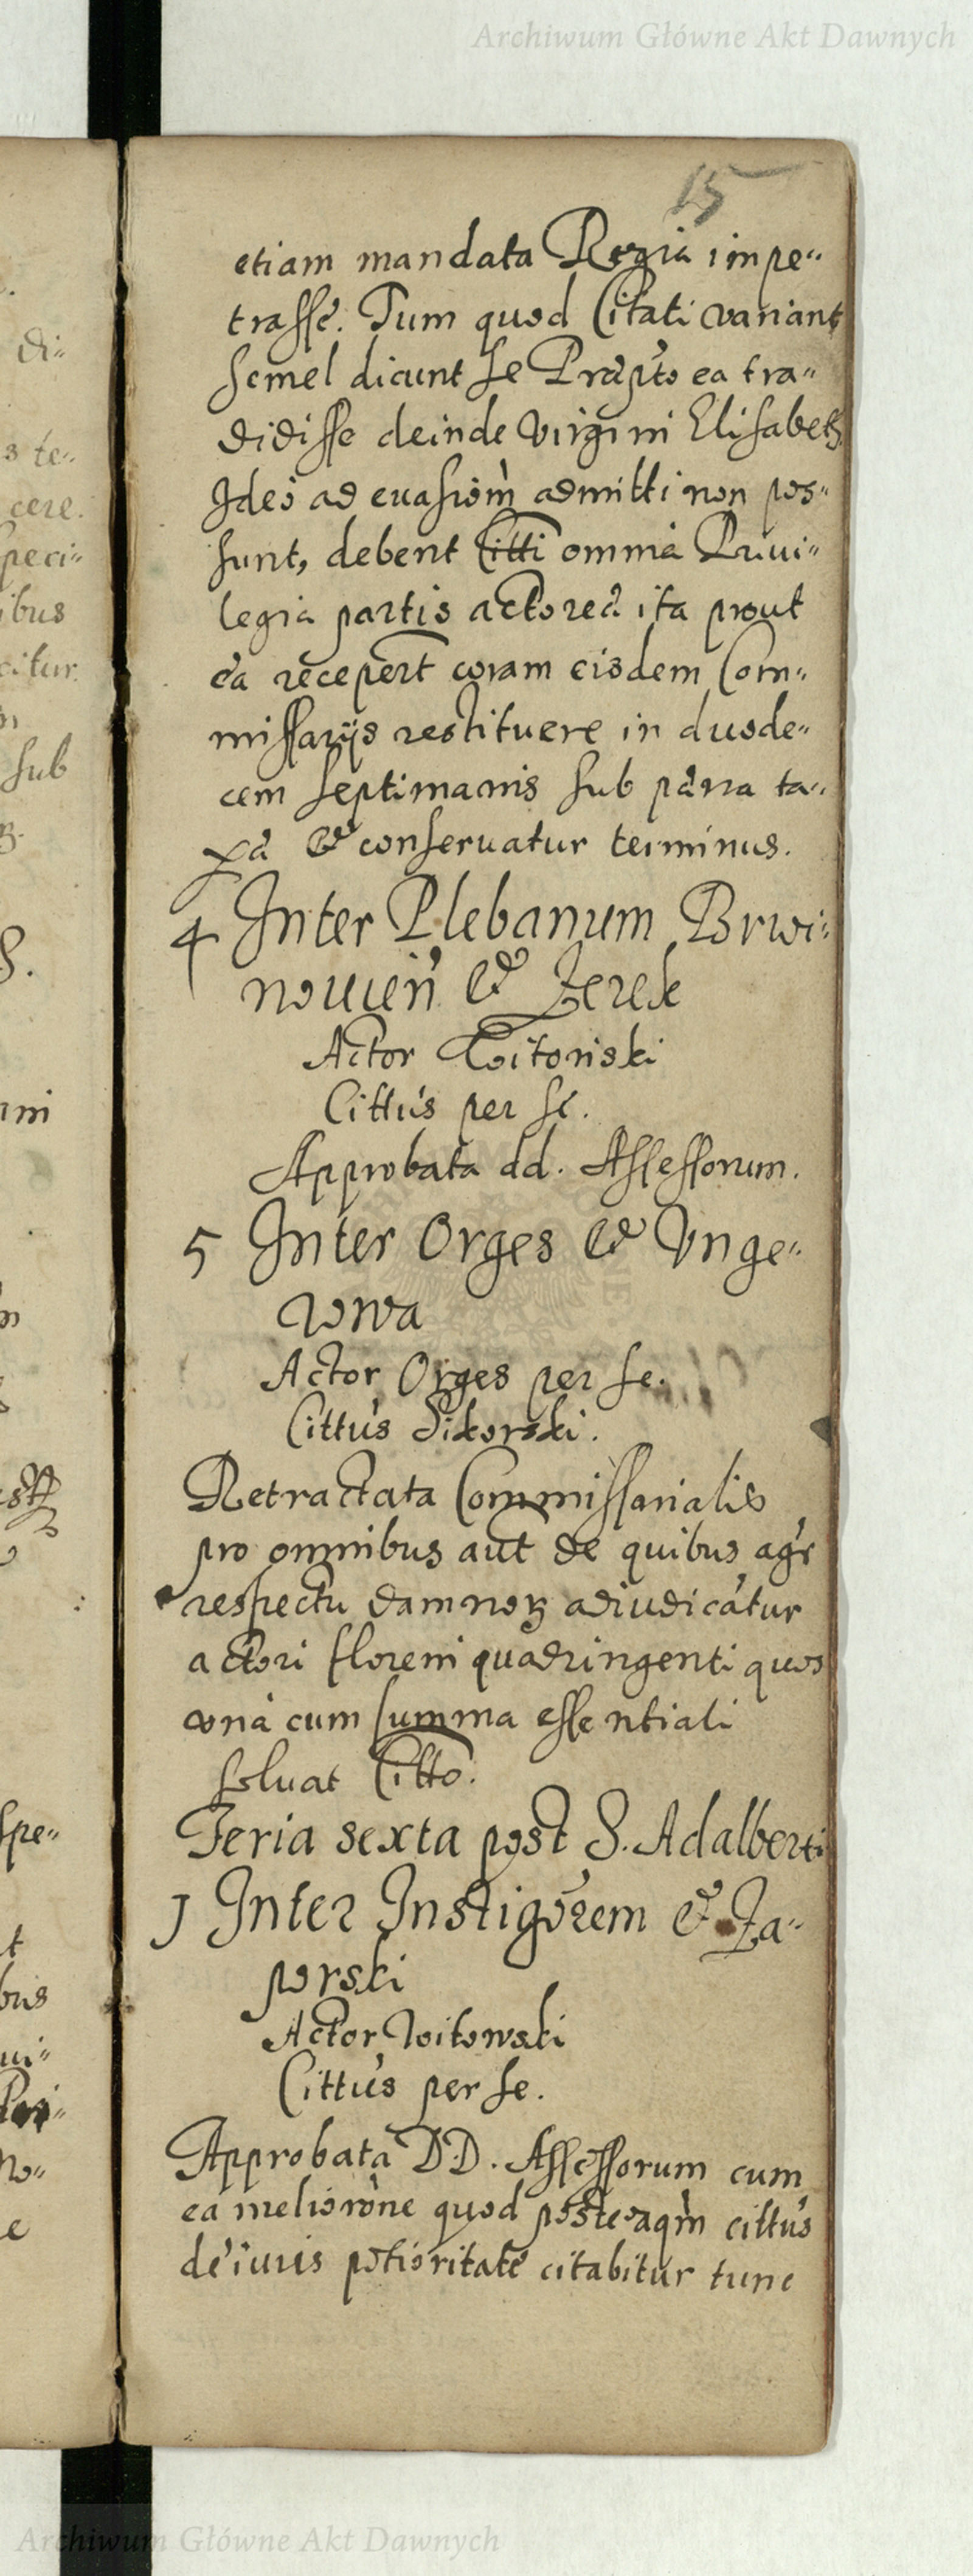 Archiwum Główne Akt Dawnych
15
etiam mandata Regia impe-
trasse. Tum quod Citati variant
semel dicunt se Præpto ea tra-
didisse deinde Virgini Elisabeth
Ideo ad evasiom admitti non pos-
sunt, debent Citti omnia Privi-
legia partis actoreæ ita prout
ea recepert coram eisdem Com-
missarijs restituere in duode-
cem septimanis sub pæna ta-
xa et conservatur terminus.
4 Inter Plebanum Brwi-
novien et Zerek
Actor Woitoński
Cittus per se.
Approbata dd. Assessorum.
5 Inter Orges et Unge-
rowa
Actor Orges per se.
Cittus Sikorski.
Retractata Commissarialis
pro omnibus aut de quibus agr
respectu damnoꝝ adiudicatur
actori floreni quadringenti quos
una cum summa essentiali
solvat Citto.
Feria sexta post S. Adalberti
1 Inter Instigorem et Za-
porski
Actor Woitowski
Cittus per se.
Approbata D.D. Assessorum cum
ea meliorone quod posteaqm cittus
de iuris potioritate citabitur tunc
Archiwum Główne Akt Dawnych